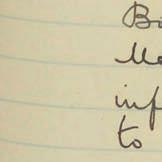 Bo
Me
inf
to